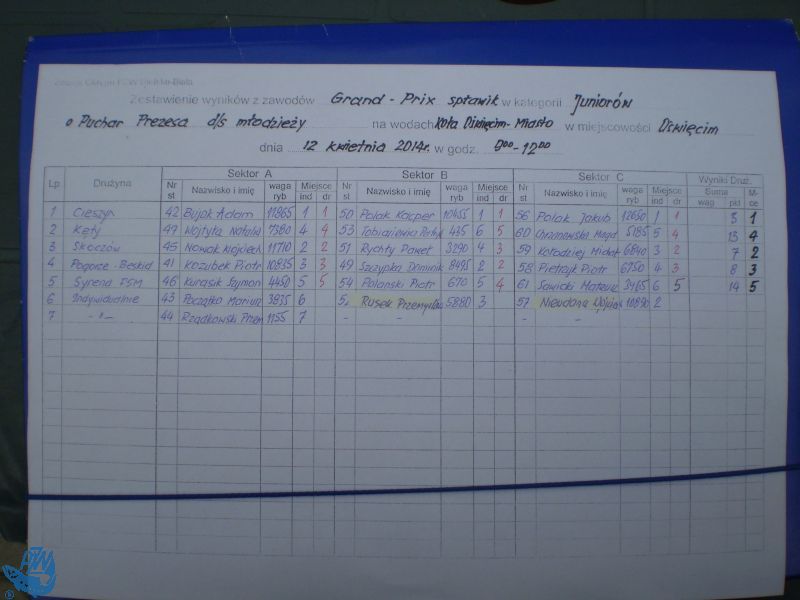 Zestawienie wyników z zawodów Grand - Prix spławik w kategorii Juniorów
o Puchar Prezesa d/s młodzieży na wodach Koła Oświęcim - Miasto w miejscowości Oświęcim
dnia 12 kwietnia 2014r. w godz. 9⁰⁰-12⁰⁰
Sektor A Sektor B Sektor C Wyniki Druż.
Lp Drużyna Nr st Nazwisko i imię waga ryb Miejsce ind dr Nr st Nazwisko i imię waga ryb Miejsce ind dr Nr st Nazwisko i imię waga ryb Miejsce ind dr Suma wag pkt M-ce
1 Cieszyn 42 Bujok Adam 11865 1 1 50 Polak Kacper 10455 1 1 56 Polak Jakub 12650 1 1 3 1
2 Kęty 49 Wojtyła Natalia 7380 4 4 53 435 6 5 60 5185 5 4 13 4
3 Skoczów 45 Nowak Wojciech 11710 2 2 51 Rychty Paweł 3290 4 3 59 Kołodziej Michał 6840 3 2 7 2
4 Pogórze - Beskid 41 Kozubek Piotr 10835 3 3 49 Szczypka Dominik 8495 2 2 58 Pietrzyk Piotr 6750 4 3 8 3
5 Syrena FSM 46 Kurasik Szymon 4450 5 5 54 Polański Piotr 670 5 4 61 Sawicki Mateusz 3465 6 5 14 5
6 Indywidualnie 43 Początko Mariusz 3835 6 Rusek Przemysław 5880 3 57 10890 2
7 -"- 44 Rządkowski Przem 1155 7 - - - -
PZW
®